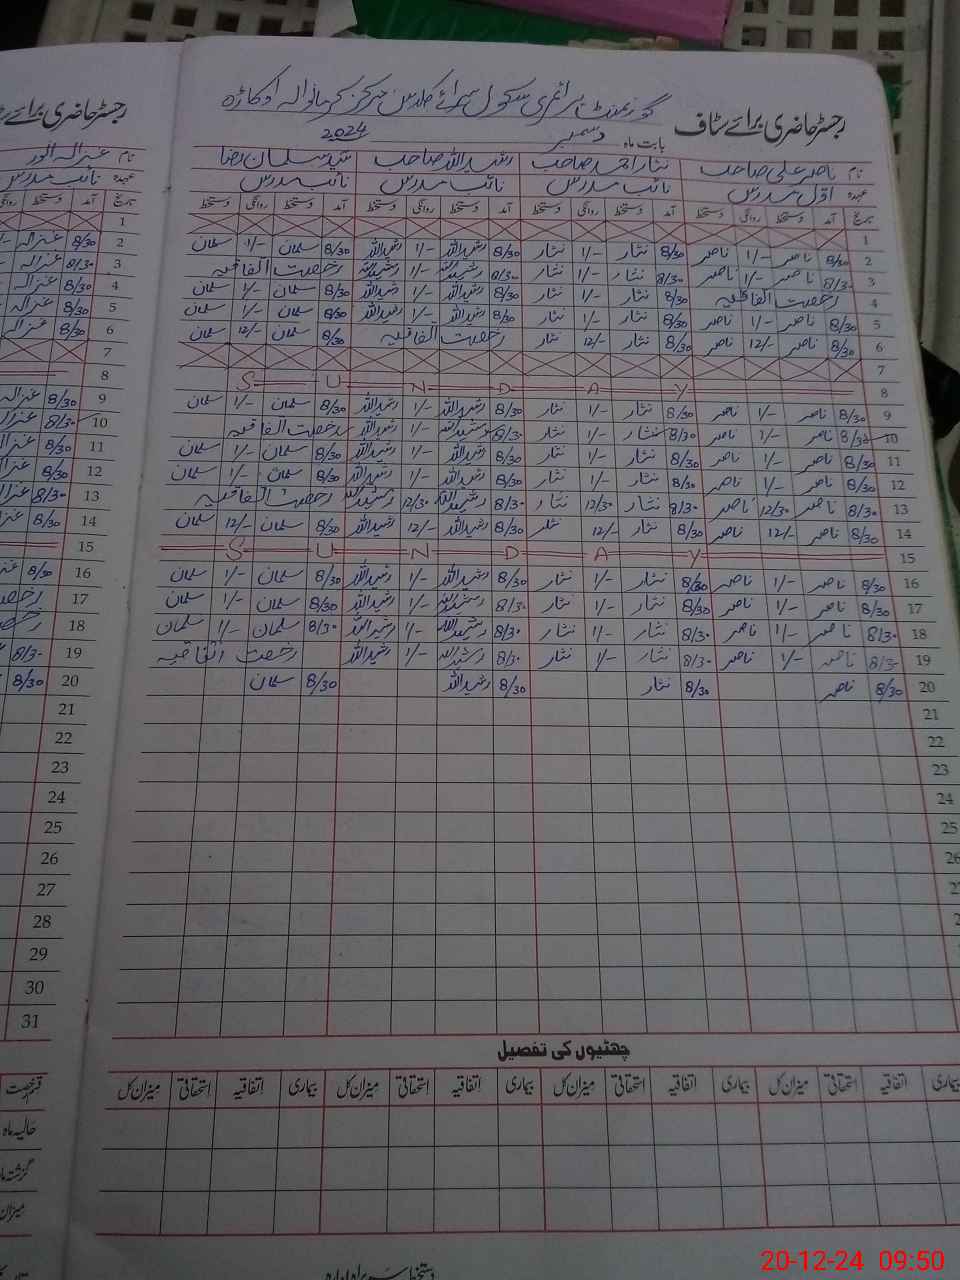 رجسٹر حاضری برائے سٹاف
گورنمنٹ پرائمری سکول
اوکاڑہ
بابت ماہ دسمبر 2024
نام ناصر علی صاحب نثار احمد صاحب رشید اللہ صاحب سید سلمان رضا
عہدہ اول مدرس نائب مدرس نائب مدرس نائب مدرس
تاریخ آمد دستخط روانگی دستخط آمد دستخط روانگی دستخط آمد دستخط روانگی دستخط آمد دستخط روانگی دستخط
1
2 8/30 ناصر 1/- ناصر 8/30 نثار 1/- نثار 8/30 رشید اللہ 1/- رشید اللہ 8/30 سلمان 1/- سلمان
3 8/30 ناصر 1/- ناصر 8/30 نثار 1/- نثار 8/30 رشید اللہ 1/- رشید اللہ رخصت اتفاقیہ
4 رخصت اتفاقیہ 8/30 نثار 1/- نثار 8/30 رشید اللہ 1/- رشید اللہ 8/30 سلمان 1/- سلمان
5 8/30 ناصر 1/- ناصر 8/30 نثار 1/- نثار 8/30 رشید اللہ 1/- رشید اللہ 8/30 سلمان 1/- سلمان
6 8/30 ناصر 12/- ناصر 8/30 نثار 12/- نثار رخصت اتفاقیہ 8/30 سلمان 12/- سلمان
7
8 SUNDAY
9 8/30 ناصر 1/- ناصر 8/30 نثار 1/- نثار 8/30 رشید اللہ 1/- رشید اللہ 8/30 سلمان 1/- سلمان
10 8/30 ناصر 1/- ناصر 8/30 نثار 1/- نثار 8/30 رشید اللہ 1/- رشید اللہ رخصت اتفاقیہ
11 8/30 ناصر 1/- ناصر 8/30 نثار 1/- نثار 8/30 رشید اللہ 1/- رشید اللہ 8/30 سلمان 1/- سلمان
12 8/30 ناصر 1/- ناصر 8/30 نثار 1/- نثار 8/30 رشید اللہ 1/- رشید اللہ 8/30 سلمان 1/- سلمان
13 8/30 ناصر 12/30 ناصر 8/30 نثار 12/30 نثار 8/30 رشید اللہ 12/30 رشید اللہ رخصت اتفاقیہ
14 8/30 ناصر 12/- ناصر 8/30 نثار 12/- نثار 8/30 رشید اللہ 12/- رشید اللہ 8/30 سلمان 12/- سلمان
15 SUNDAY
16 8/30 ناصر 1/- ناصر 8/30 نثار 1/- نثار 8/30 رشید اللہ 1/- رشید اللہ 8/30 سلمان 1/- سلمان
17 8/30 ناصر 1/- ناصر 8/30 نثار 1/- نثار 8/30 رشید اللہ 1/- رشید اللہ 8/30 سلمان 1/- سلمان
18 8/30 ناصر 1/- ناصر 8/30 نثار 1/- نثار 8/30 رشید اللہ 1/- رشید اللہ 8/30 سلمان 1/- سلمان
19 8/30 ناصر 1/- ناصر 8/30 نثار 1/- نثار 8/30 رشید اللہ 1/- رشید اللہ رخصت اتفاقیہ
20 8/30 ناصر 8/30 نثار 8/30 رشید اللہ 8/30 سلمان
21
22
23
24
25
26
چھٹیوں کی تفصیل
بیماری اتفاقیہ استحقاقی میزان کل بیماری اتفاقیہ استحقاقی میزان کل بیماری اتفاقیہ استحقاقی میزان کل بیماری اتفاقیہ استحقاقی میزان کل
رجسٹر حاضری برائے
نام
عہدہ نائب مدرس
تاریخ آمد دستخط روانگی
1
2 8/30
3 8/30
4 8/30
5 8/30
6 8/30
7
8
9 8/30
10 8/30
11 8/30
12 8/30
13 8/30
14 8/30
15
16 8/30
17
18
19 8/30
20 8/30
21
22
23
24
25
26
27
28
29
30
31
قسم رخصت
حالیہ ماہ
گزشتہ ماہ
میزان
20-12-24 09:50